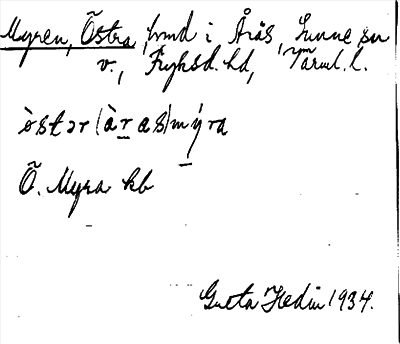 Myren, Östra, hmd i Årås, Sunne sn
v., Fryksd. hd, Värml. l.
östər (åras) mýra
Ö. Myra kb
Greta Hedin 1934.